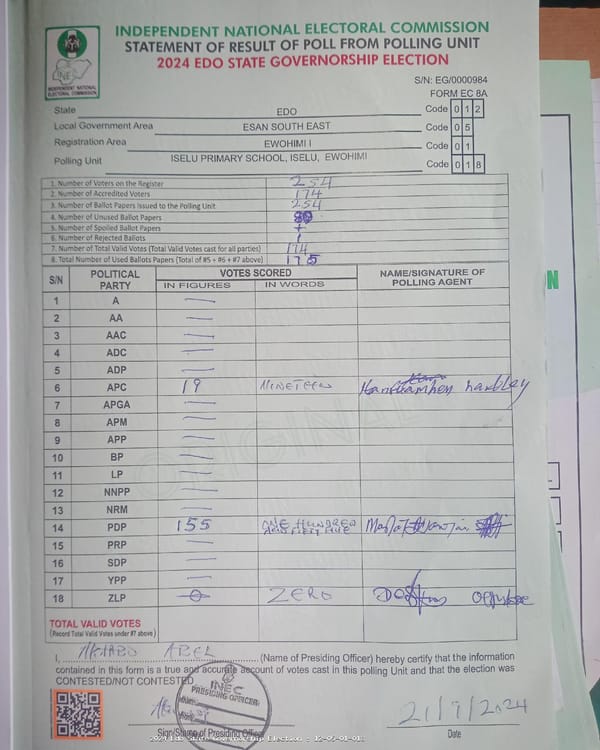 INDEPENDENT NATIONAL ELECTORAL COMMISSION
STATEMENT OF RESULT OF POLL FROM POLLING UNIT
2024 EDO STATE GOVERNORSHIP ELECTION
INEC
INDEPENDENT NATIONAL
ELECTORAL COMMISSION
S/N: EG/0000984
FORM EC 8A
State EDO Code 0 1 2
Local Government Area ESAN SOUTH EAST Code 0 5
Registration Area EWOHIMI I Code 0 1
Polling Unit ISELU PRIMARY SCHOOL, ISELU, EWOHIMI Code 0 1 8
1. Number of Voters on the Register 254
2. Number of Accredited Voters 174
3. Number of Ballot Papers Issued to the Polling Unit 254
4. Number of Unused Ballot Papers
5. Number of Spoiled Ballot Papers
6. Number of Rejected Ballots
7. Number of Total Valid Votes (Total Valid Votes cast for all parties) 174
8. Total Number of Used Ballots Papers (Total of #5 + #6 + #7 above) 175
S/N POLITICAL PARTY VOTES SCORED NAME/SIGNATURE OF POLLING AGENT
IN FIGURES IN WORDS
1 A —
2 AA —
3 AAC —
4 ADC —
5 ADP —
6 APC 19 NINETEEN
7 APGA —
8 APM —
9 APP —
10 BP —
11 LP —
12 NNPP —
13 NRM —
14 PDP 155 ONE HUNDRED AND FIFTY FIVE
15 PRP —
16 SDP —
17 YPP —
18 ZLP 0 ZERO
TOTAL VALID VOTES
(Record Total Valid Votes under #7 above)
I, ABEL (Name of Presiding Officer) hereby certify that the information
contained in this form is a true and accurate account of votes cast in this polling Unit and that the election was
CONTESTED/NOT CONTESTED
INEC
PRESIDING OFFICER
21/9/2024
Sign/Stamp of Presiding Officer Date